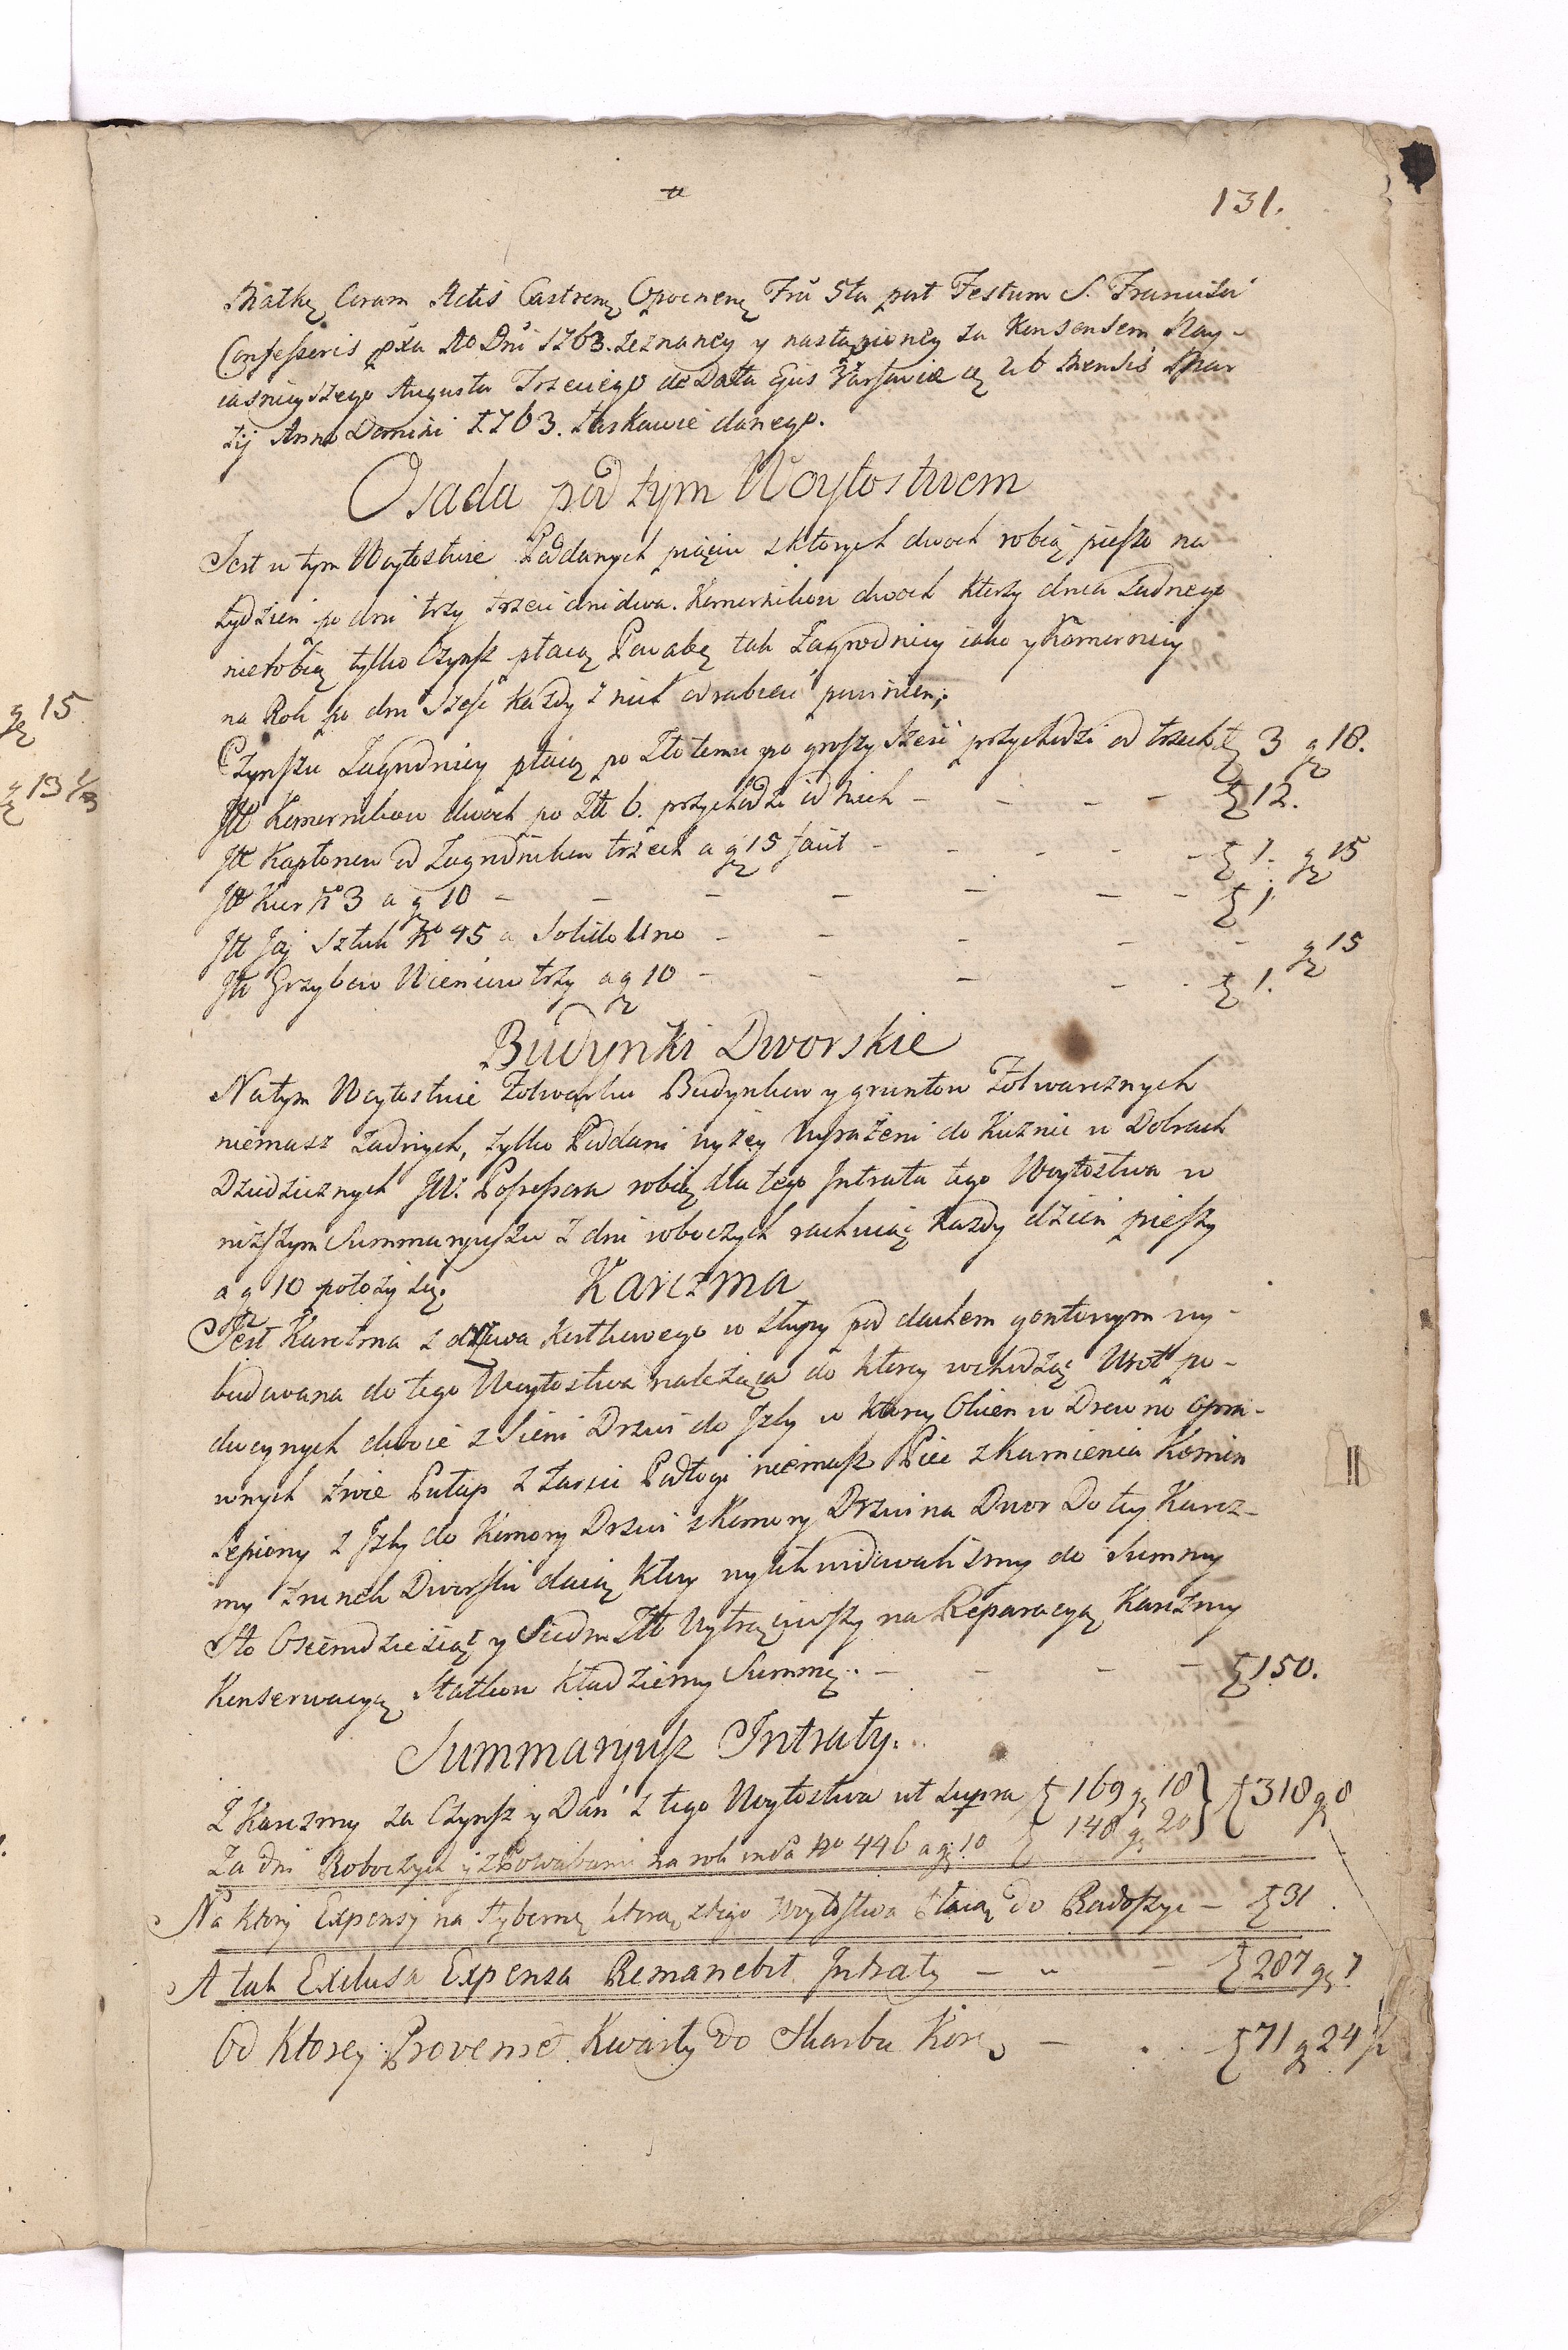 131.
Matkę Coram Actis Castren Opocznen Fria 5ta post Festum S. Francisci
Confessoris pxa Ao Dni 1763. zeznaney y nastąpioney za Konsensem Nay-
iasnieyszego Augusta Trzeciego de Data Ejus Varsaviae 26 Mensis Mar
tij Anno Domini 1763. łaskawie danego.
Osada pod tym Woytostwem
Jest w tym Woytostwie Poddanych pięciu z ktorych dwoch robią pieszo na
tydzien po dni trzy trzeci dni dwa. Komornikow dwoch ktorzy dnia żadnego
nierobią tylko Czynsz płacą Powabę tak Zagrodnicy iako y Komornicy
na Rok po dni szesc każdy z nich odrabiać powinien;
Czynszu Zagrodnicy płacą po Złotemu po groszy szesc przychodzi od trzech ƒ 3 g 18.
Itt Komornikow dwoch po Zlt 6. przychodzi od nich - - - - ƒ 12.
Itt Kapłonow od Zagrodnikow trzech a g 15 facit - - - - - ƒ 1. g 15
Itt Kur No 3 a g 10 - - - - - - - ƒ 1
Itt Jaj Sztuk No 45 a Solido Uno - - - - - g 15
Itt Grzybow Wiencow trzy a g 10 - - - - ƒ 1.
Budynki Dworskie
Na tym Woytostwie Folwarku Budynkow y gruntow Folwarcznych
niemasz żadnych, tylko Poddani wyżey wyrażeni do Kuznic w Dobrach
Dziedzicznych JW. Possessora robią dla tego Intrata tego Woytostwa w
niższym Summaryuszu z dni roboczych rachuiąc każdy dzień pieszy
a g 10 położy się.
Karczma
Jest Karczma z drzewa Kostkowego w słupy pod dachem gontowym wy-
budowana do tego Woytostwa należąca do ktorey wchodząc Wrot po-
dwoynych dwoie z Sieni Drzwi do Izby w ktorey Okien w Drewno opra-
wnych troie Pułap z tarcic Podłogi niemasz Piec z Kamienia Komin
lepiony z Izby do Komory Drzwi z Komory Drzwi na Dwor Do tey Karcz-
my trunek Dworski daią ktory wylikwidowalismy do Summy
Sto Osiemdziesiąt y Siedm Zlt Wytrąciwszy na Reparacyą Karczmy
Konserwacyą Statkow kładziemy Summę.. - - - - ƒ 150.
Summaryusz Intraty..
Z Karczmy za Czynsz y Dań z tego Woytostwa ut supra ƒ 169 g 18 } ƒ 318 g 8
Za dni Roboczych y z Powabami za rok No 446 a g 10 ƒ 148 g 20
Na ktory Expensy na Hybernę ktorą z tego Woytostwa płacą do Radoszyc - ƒ 31
A tak Exclusa Expensa Remanebit Intraty - - - ƒ 287 g
Od ktorey Provenié Kwarty do Skarbu Kor - . - ƒ 71 g 24
g 15
g 13 1/3